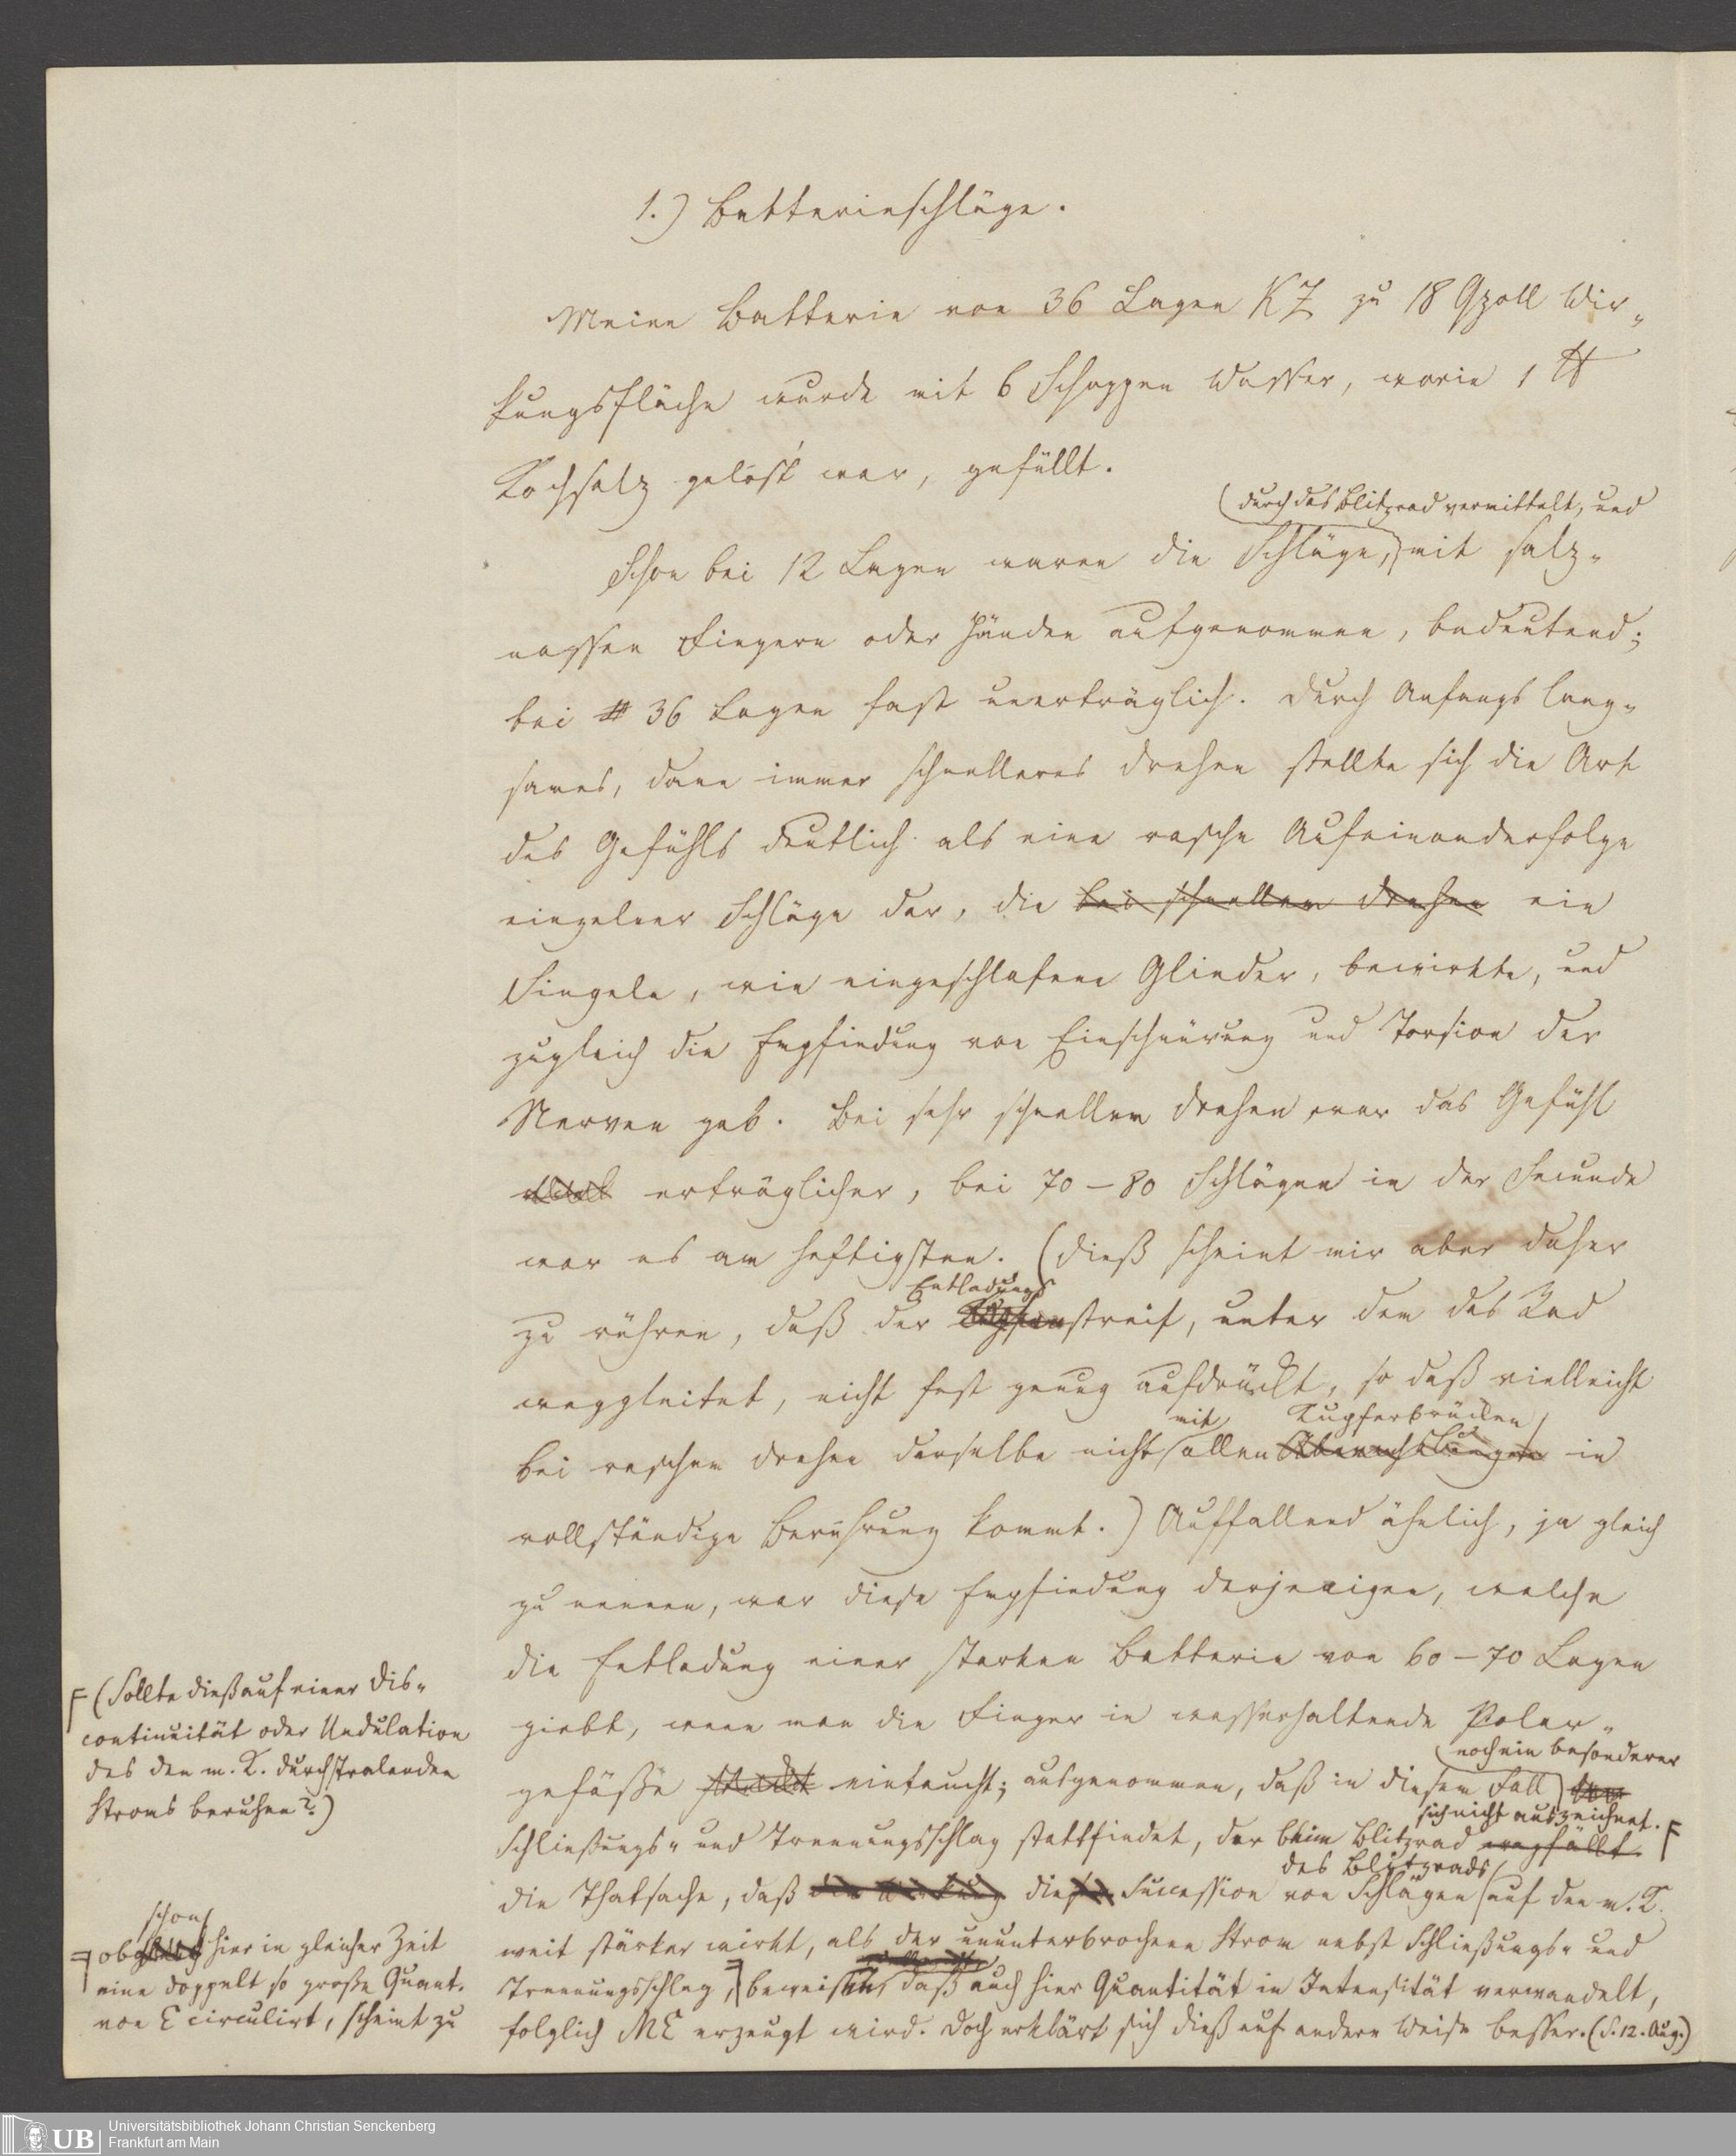 1.) Batterieschläge.
Meine Batterie von 36 Lagen KZ zu 18 Qzoll Wir„
kungsfläche wurde mit 6 Schoppen Wasser, worin 1 ℔
Kochsalz gelöst war, gefüllt.
(durch das Blitzrad vermittelt, und
Schon bei 12 Lagen waren die Schläge, mit salz„
nassen Fingern oder Händen aufgenommen, bedeutend;
bei 36 Lagen fast unerträglich. Durch Anfangs lang„
sames, dann immer schnelleres Drehen stellte sich die Art
des Gefühls deutlich als eine rasche Aufeinanderfolge
einzelner Schläge dar, die bei schnellem Drehen ein
Singeln, wie eingeschlafene Glieder, bewirkte, und
zugleich die Empfindung von Einschnürung und Torsion der
Nerven gab. Bei sehr schnellem Drehen war das Gefühl
erträglicher, bei 70–80 Schlägen in der Secunde
war es am heftigsten. (Dieß scheint mir aber daher
Entladungs
zu rühren, daß der Kupferstreif, unter dem das Rad
weggleitet, nicht fest genug aufdrückt, so daß vielleicht
mit Kupferbrücken
bei raschem Drehen derselbe nicht allen in
vollständige Berührung kommt.) Auffallend ähnlich, ja gleich
zu nennen, war diese Empfindung derjenigen, welche
die Entladung einer starken Batterie von 60–70 Lagen
giebt, wenn man die Finger in wasserhaltende Polar„
noch ein besonderer
gefäße eintaucht; ausgenommen, daß in diesem Fall
sich nicht auszeichnet. F
Schließungs„ und Trennungsschlag stattfindet, der beim Blitzrad wegfällt.
des Blitzrads
die Thatsache, daß die Wirkung diese Succession von Schlägen auf den m. K.
weit stärker wirkt, als der ununterbrochene Strom nebst Schließungs„ und
Trennungsschlag, beweisen, daß auch hier Quantität in Intensität verwandelt,
folglich ME erzeugt wird. Doch erklärt sich dieß auf andere Weise besser. (S. 12. Aug.)
F (Sollte dieß auf einer Dis„
continuität oder Undulation
des den m. K. durchstralenden
Stroms beruhen?)
schon
ob hier in gleicher Zeit
eine doppelt so große Quant.
von E circulirt, scheint zu
UB
Universitätsbibliothek Johann Christian Senckenberg
Frankfurt am Main